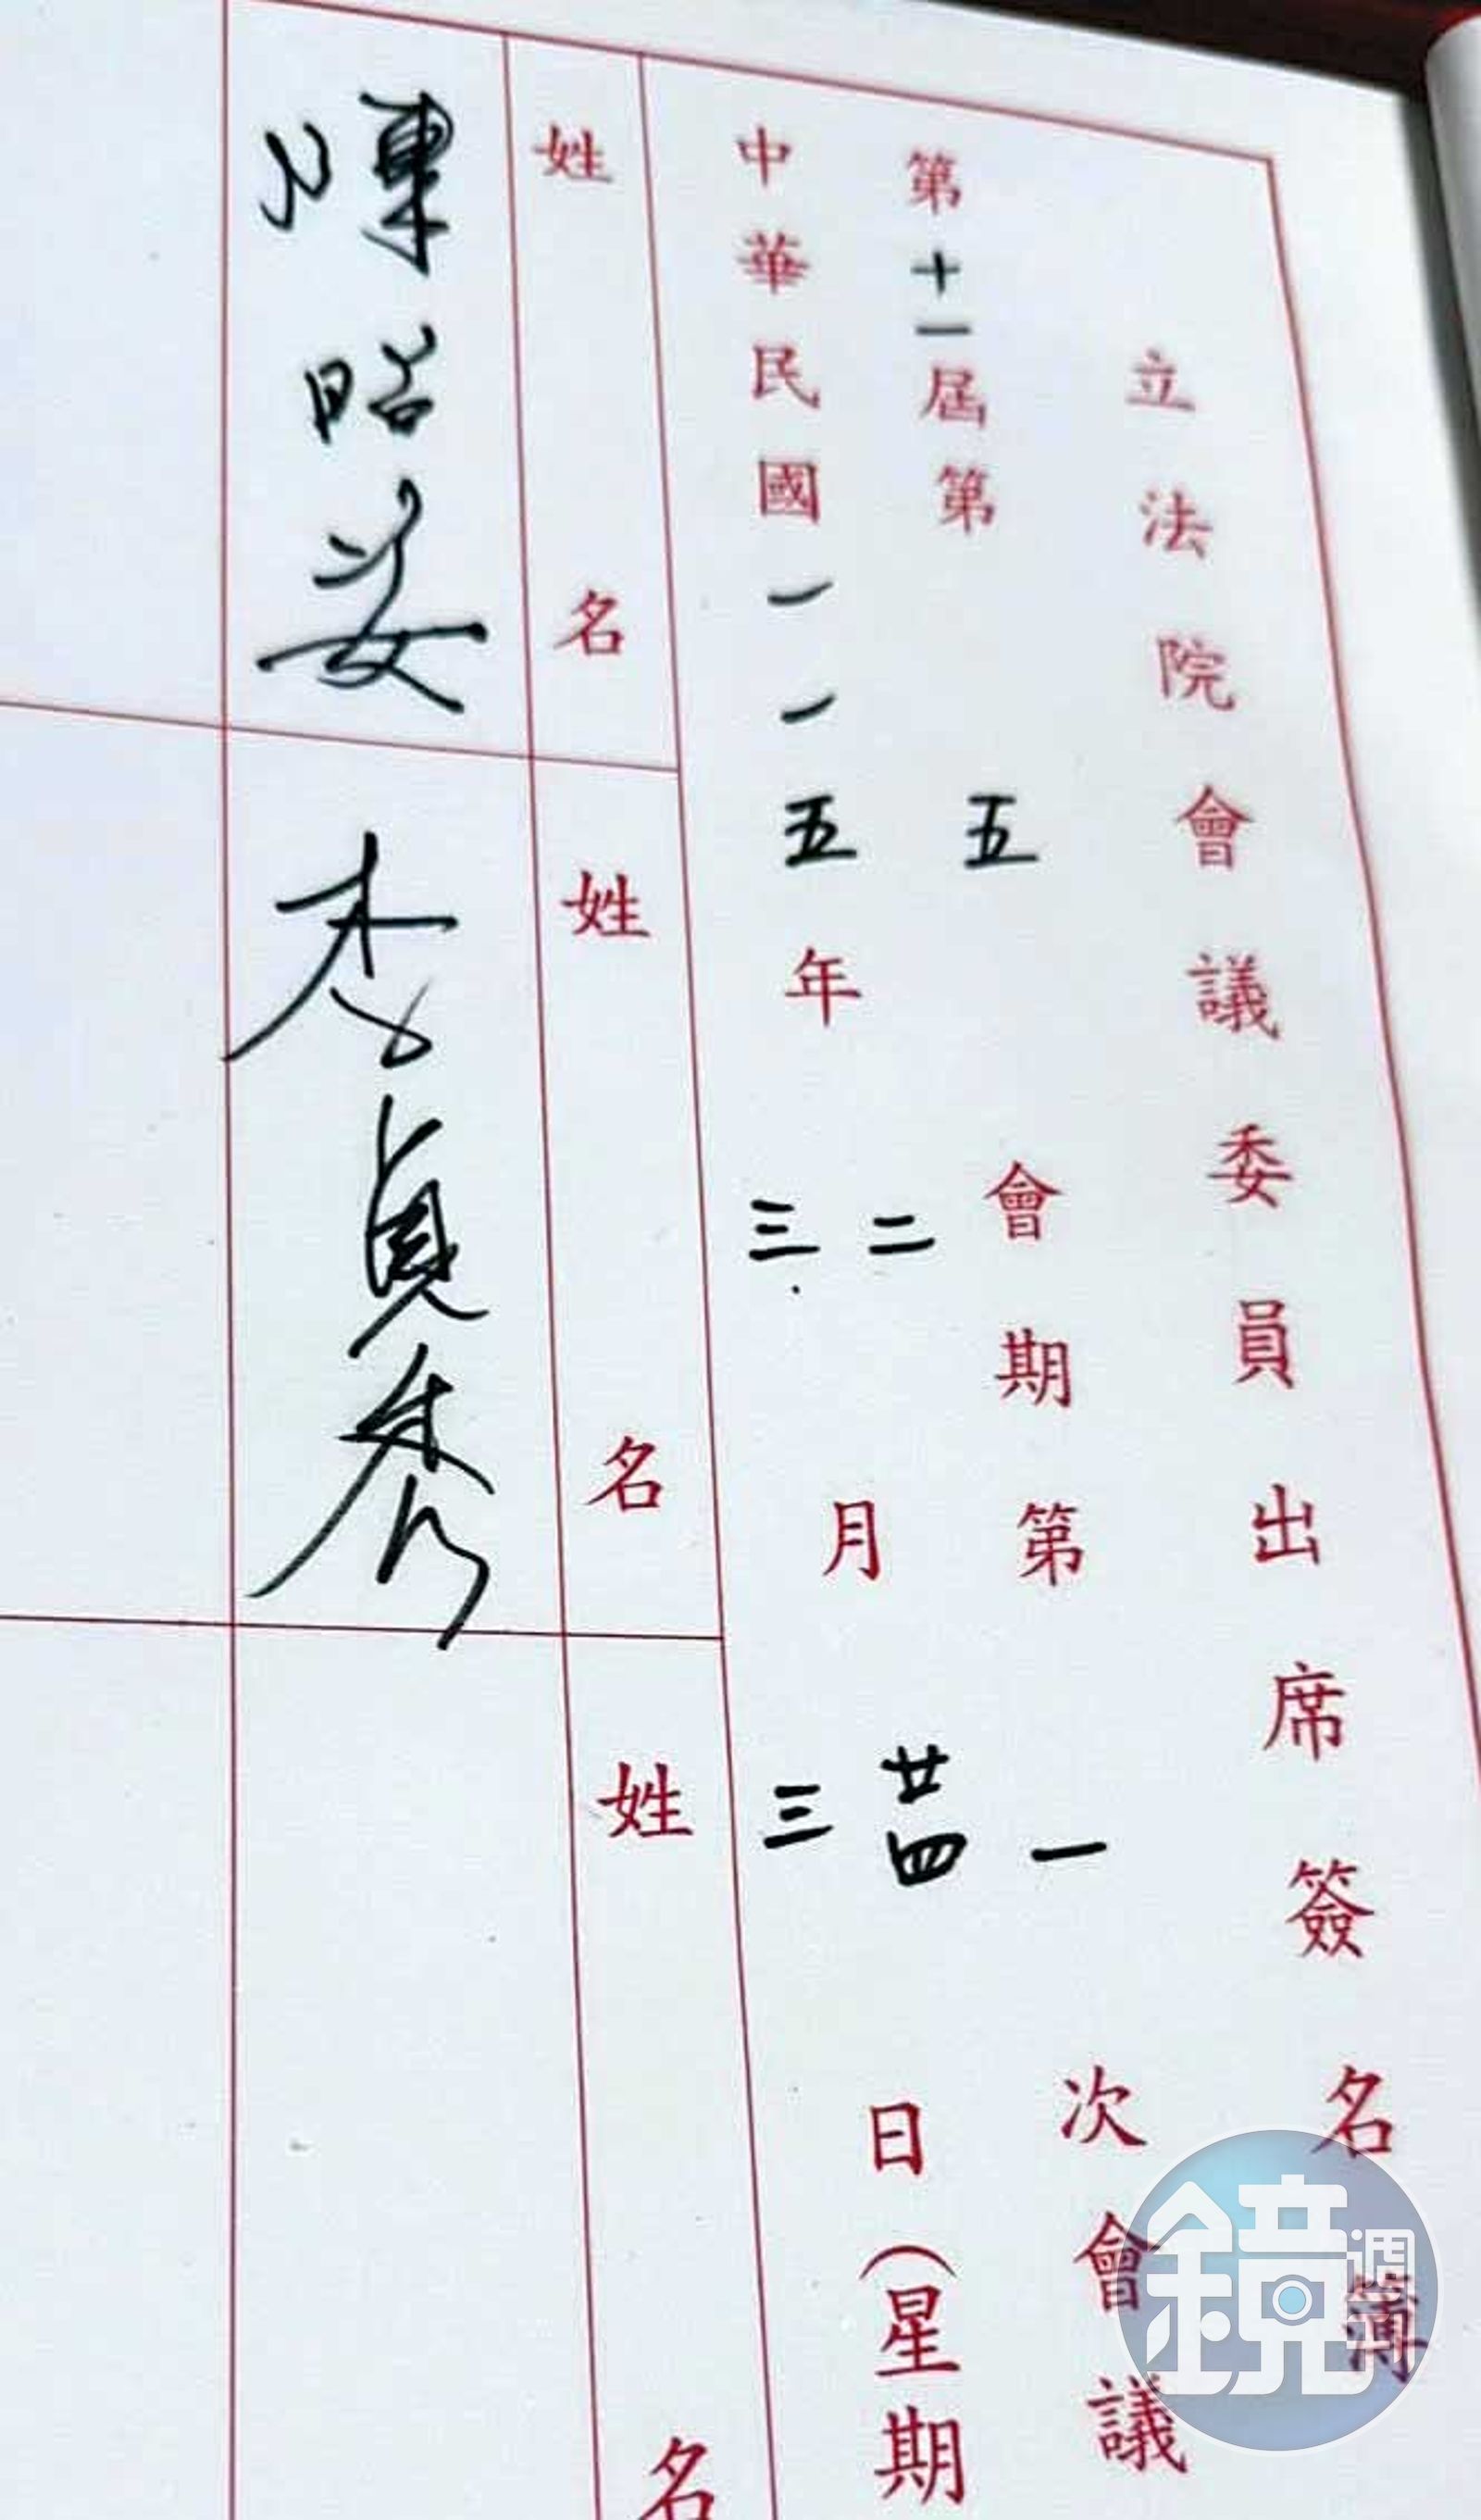 立法院會議委員出席簽名簿
第十一屆第五會期第一次會議
中華民國一一五年二月廿四日(星期
三 三
姓名
陳昭姿
姓名
李貞秀
姓名
鏡週刊